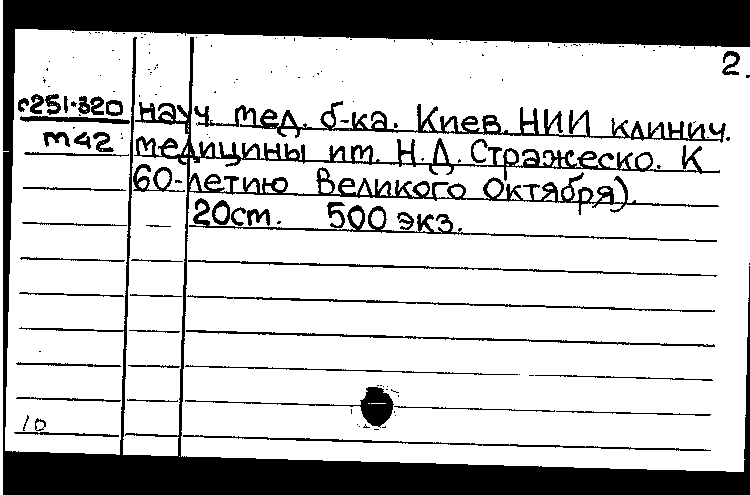 2.
с251-320 науч. мед. б-ка. Киев. НИИ клинич.
м42 медицины им. Н.Д. Стражеско. К
60-летию Великого Октября).
20см. 500 экз.
10